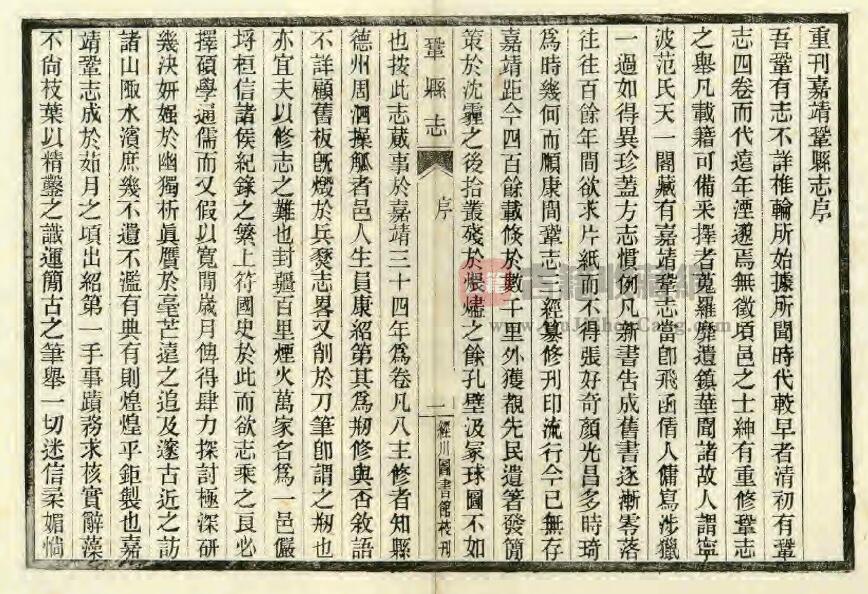 重刊嘉靖鞏縣志序
吾鞏有志不詳椎輪所始據所聞時代較早者清初有鞏
志四卷而代遠年湮邈焉無徵項邑之士紳有重修鞏志
之舉凡載籍可備采擇者蒐羅靡遺鎮華聞諸故人謂寧
波范氏天一閣藏有嘉靖鞏志當卽飛函倩人傭寫涉獵
一過如得異珍蓋方志慣例凡新書告成舊書逐漸零落
往往百餘年間欲求片紙而不得張好奇顏光昌多時琦
爲時幾何而順康間鞏志三經纂修刊印流行今已無存
嘉靖距今四百餘載倐於數千里外獲覩先民遺箸發簡
策於沈霾之後拾叢殘於煨燼之餘孔壁汲冢球圖不如
鞏縣志
序
一
經川圖書館校刊
也按此志蕆事於嘉靖三十四年爲卷凡八主修者知縣
德州周泗操觚者邑人生員康紹第其爲刱修與否敘語
不詳顧舊板旣燬於兵燹志畧又削於刀筆卽謂之刱也
亦宜夫以修志之難也封疆百里煙火萬家名爲一邑儼
埒桓信諸侯紀錄之繁上符國史於此而欲志乘之良必
擇碩學通儒而又假以寬閒歲月俾得肆力探討極深研
幾決妍媸於幽獨析眞贋於毫芒遠之追及邃古近之訪
諸山陬水濱庶幾不遺不濫有典有則煌煌乎鉅製也嘉
靖鞏志成於茹月之項出紹第一手事蹟務求核實辭藻
不尙枝葉以精鑿之識運簡古之筆舉一切迷信柔媚惝